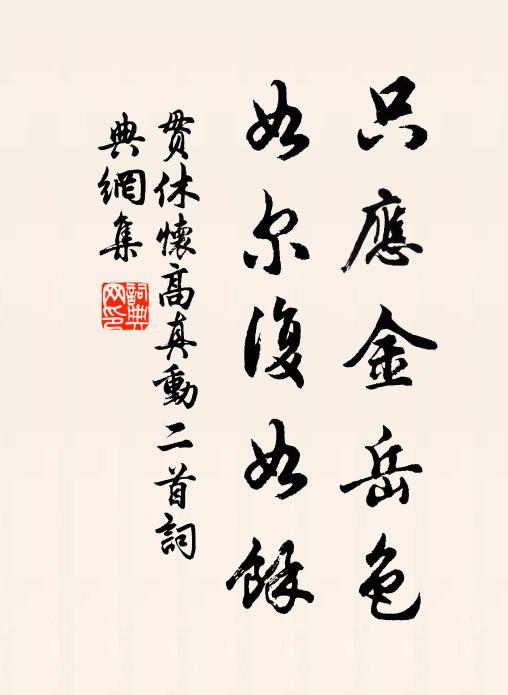 只應金岳色
如尔復如餘
貫休懷高真動二首詞
典網集
詞典網印